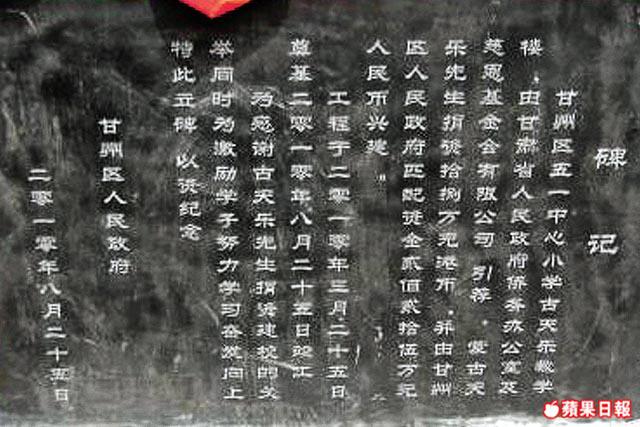 碑记
甘州区五一中心小学古天乐教学
楼，由甘肃省人民政府侨务办公室及
慈恩基金会有限公司 引荐，蒙古天
乐先生捐资拾捌万元港币，并由甘州
区人民政府匹配资金贰佰贰拾伍万元
人民币兴建。
工程于二零一零年三月二十五日
奠基二零一零年八月二十五日竣工
为感谢古天乐先生捐资建校的义
举同时为激励学子努力学习奋发向上
特此立碑 以资纪念
甘州区人民政府
二零一零年八月二十五日
蘋果日報